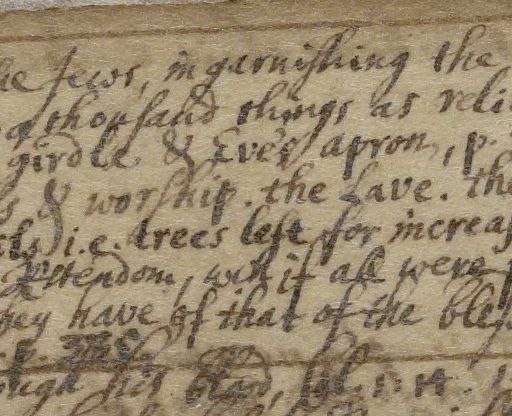 he Jews, in garnishing the
a thousand things as reli
girdle & Eve's apron, p.
s & worship. the Lave. the
i.e. trees left for increas
wch if all were
they have of that of the bless
p.
his blood,